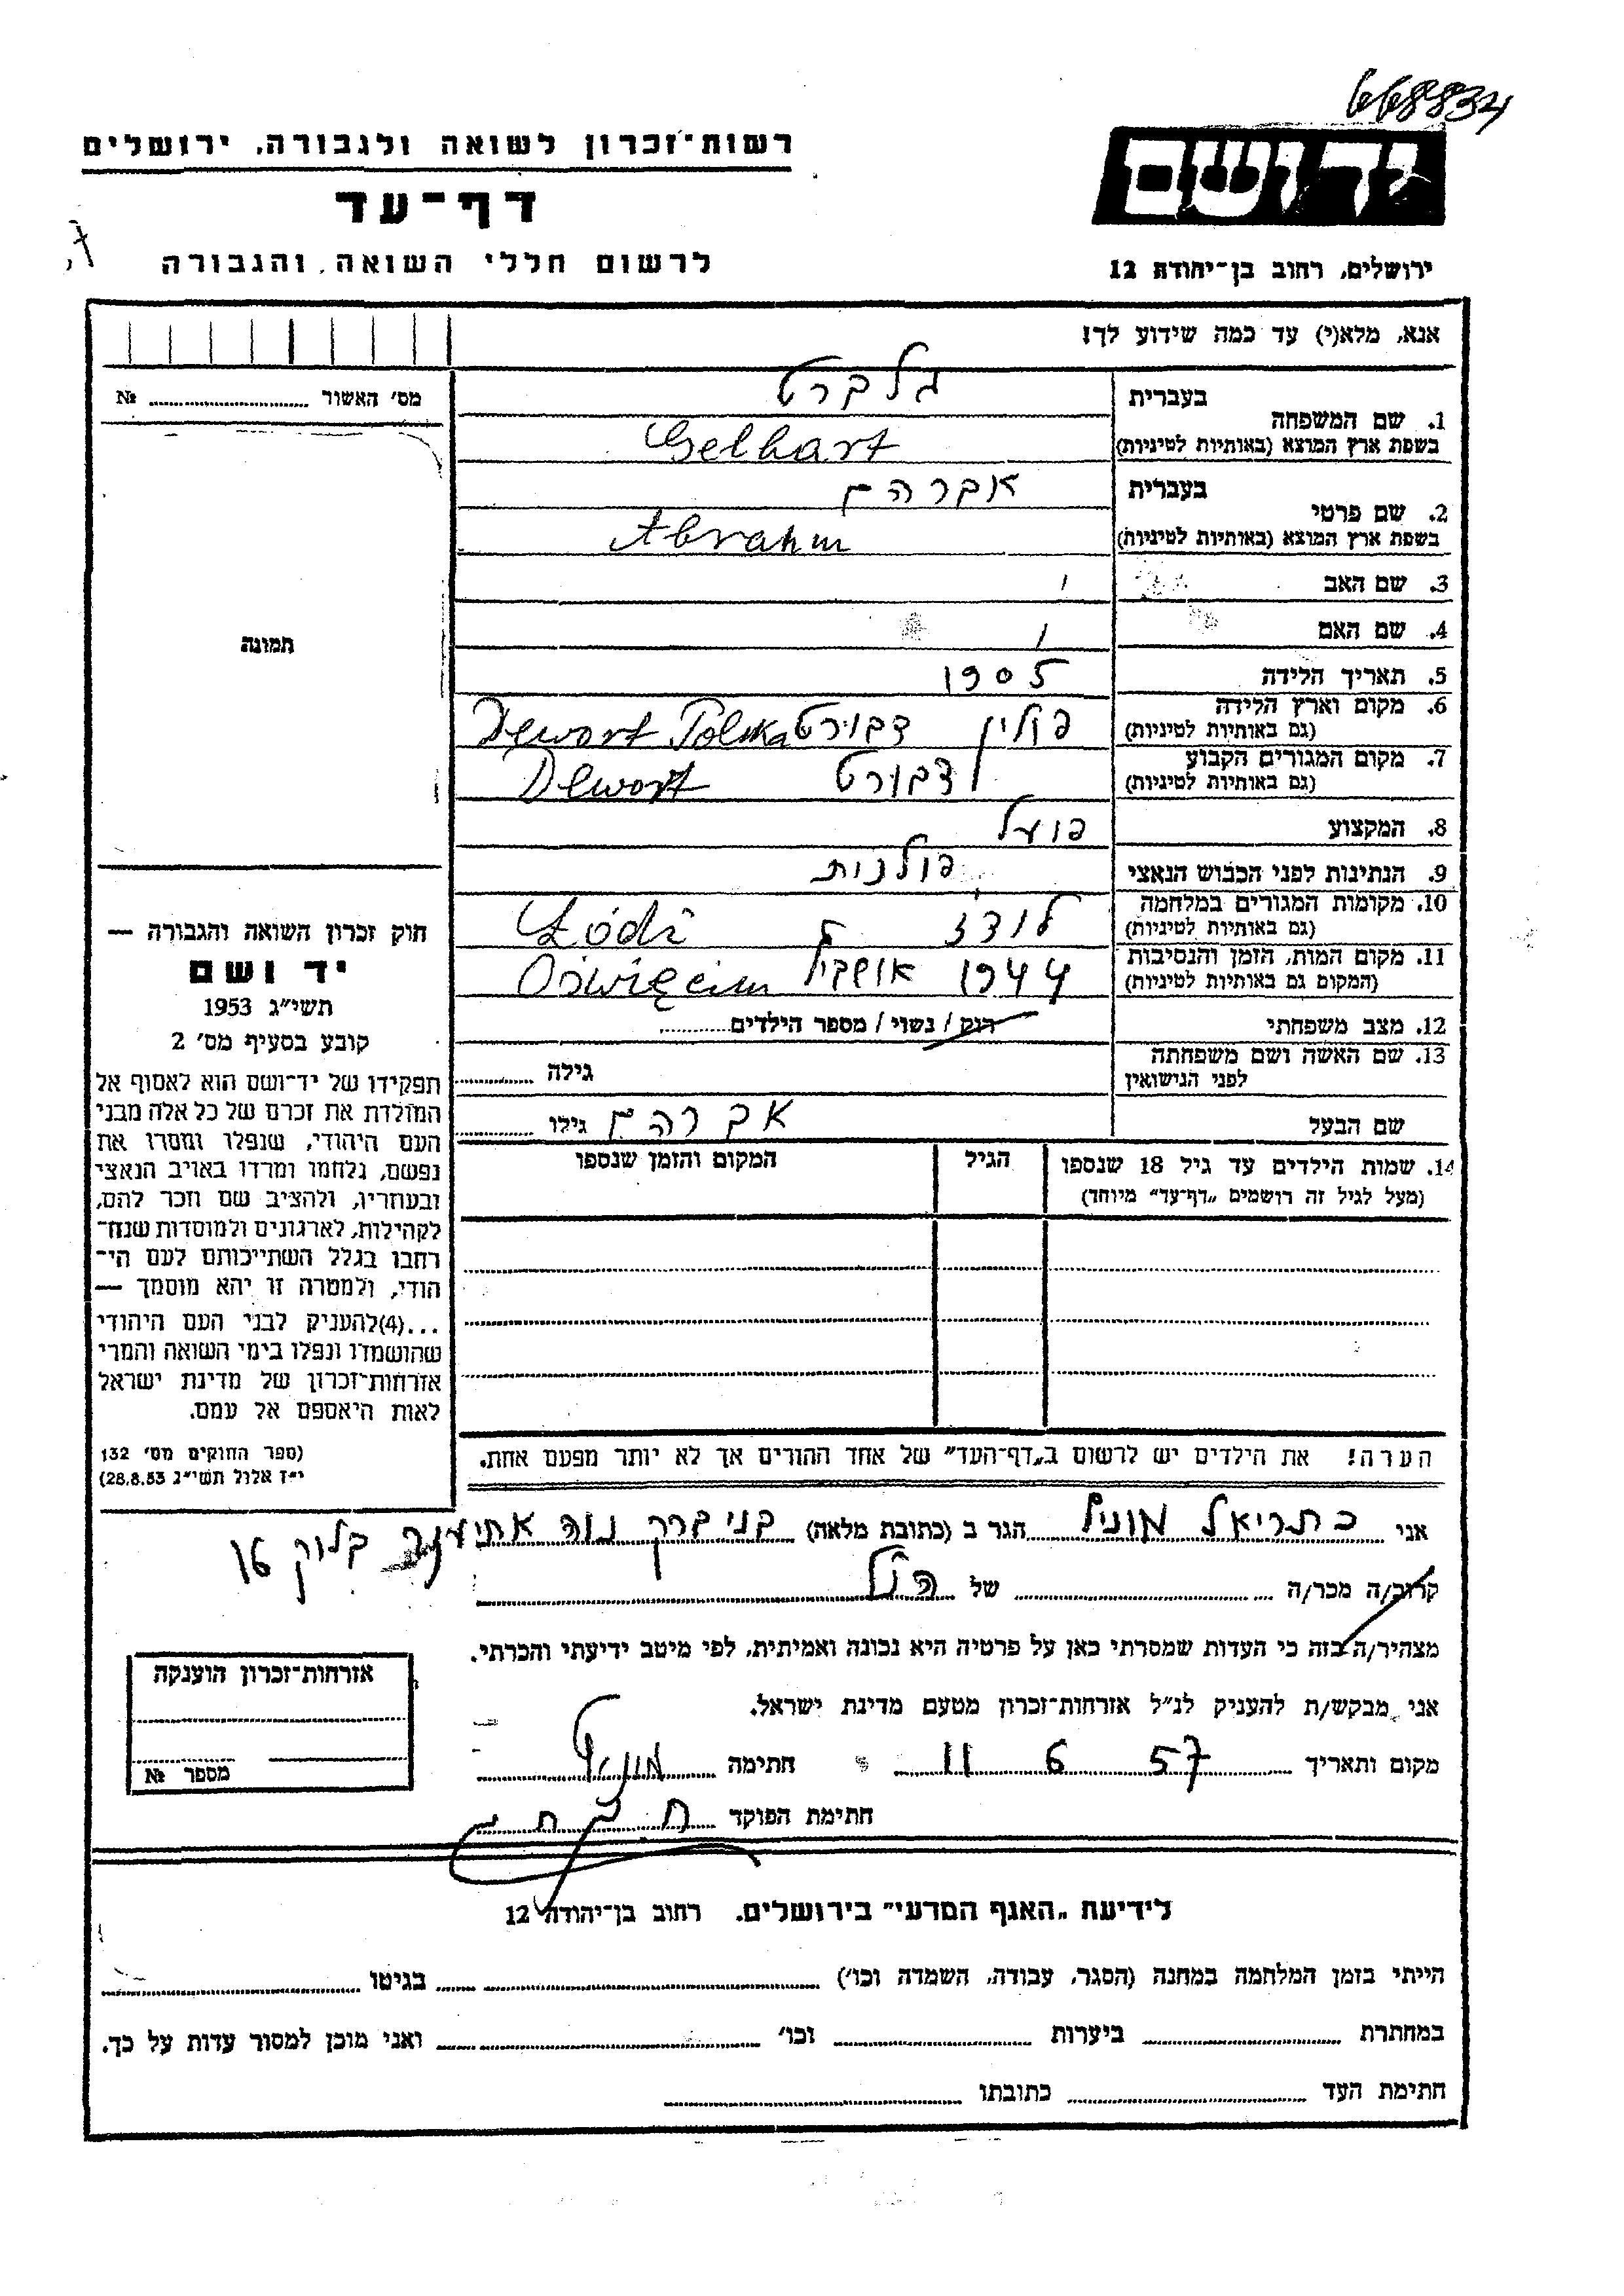 668834
רשות־זכרון לשואה ולגבורה, ירושלים
יד ושם
דף־עד
לרשום חללי השואה והגבורה
ירושלים, רחוב בן־יהודה 12
אנא, מלא(י) עד כמה שידוע לך!
מס' האשור № 
1. שם המשפחה
בעברית גלברט
בשפת ארץ המוצא (באותיות לטיניות) Gelbart
2. שם פרטי
בעברית אברהם
בשפת ארץ המוצא (באותיות לטיניות) Abrahm
3. שם האב
4. שם האם
תמונה
5. תאריך הלידה 1905
6. מקום וארץ הלידה
(גם באותיות לטיניות) פולין דבורט Dewort Polska
7. מקום המגורים הקבוע
(גם באותיות לטיניות) דבורט Dewort
8. המקצוע פועל
9. הנתינות לפני הכבוש הנאצי פולנית
10. מקומות המגורים במלחמה
(גם באותיות לטיניות) לודז Łódź
11. מקום המות, הזמן והנסיבות
(המקום גם באותיות לטיניות) 1944 Oświęcim
12. מצב משפחתי רווק / נשוי / מספר הילדים
13. שם האשה ושם משפחתה
לפני הנישואין גילה
שם הבעל אברהם גילו
14. שמות הילדים עד גיל 18 שנספו
(מעל לגיל זה רושמים "דף־עד" מיוחד)
הגיל
המקום והזמן שנספו
חוק זכרון השואה והגבורה —
יד ושם
תשי"ג 1953
קובע בסעיף מס' 2
תפקידו של יד־ושם הוא לאסוף אל
המולדת את זכרם של כל אלה מבני
העם היהודי, שנפלו ומסרו את
נפשם, נלחמו ומרדו באויב הנאצי
ובעוזריו, ולהציב שם וזכר להם,
לקהילות, לארגונים ולמוסדות שנח־
רבו בגלל השתייכותם לעם הי־
הודי, ולמטרה זו יהא מוסמך —
...(4) להעניק לבני העם היהודי
שהושמדו ונפלו בימי השואה והמרי
אזרחות־זכרון של מדינת ישראל
לאות היאספם אל עמם.
(ספר החוקים מס' 132
י"ז אלול תשי"ג 28.8.53)
הערה! את הילדים יש לרשום ב"דף־העד" של אחד ההורים אך לא יותר מפעם אחת.
אני כתריאל הגר ב (כתובת מלאה) בני ברק נוה אחיעזר בלוק 16
קרוב/ה מכר/ה של
מצהיר/ה בזה כי העדות שמסרתי כאן על פרטיה היא נכונה ואמיתית, לפי מיטב ידיעתי והכרתי.
אני מבקש/ת להעניק לנ"ל אזרחות־זכרון מטעם מדינת ישראל.
מקום ותאריך 11 6 57 חתימה
חתימת הפוקד
אזרחות־זכרון הוענקה
מספר №
לידיעת "האגף המדעי" בירושלים, רחוב בן־יהודה 12
הייתי בזמן המלחמה במחנה (הסגר, עבודה, השמדה וכו') בגיטו
במחתרת ביערות וכו' ואני מוכן למסור עדות על כך.
חתימת העד כתובתו